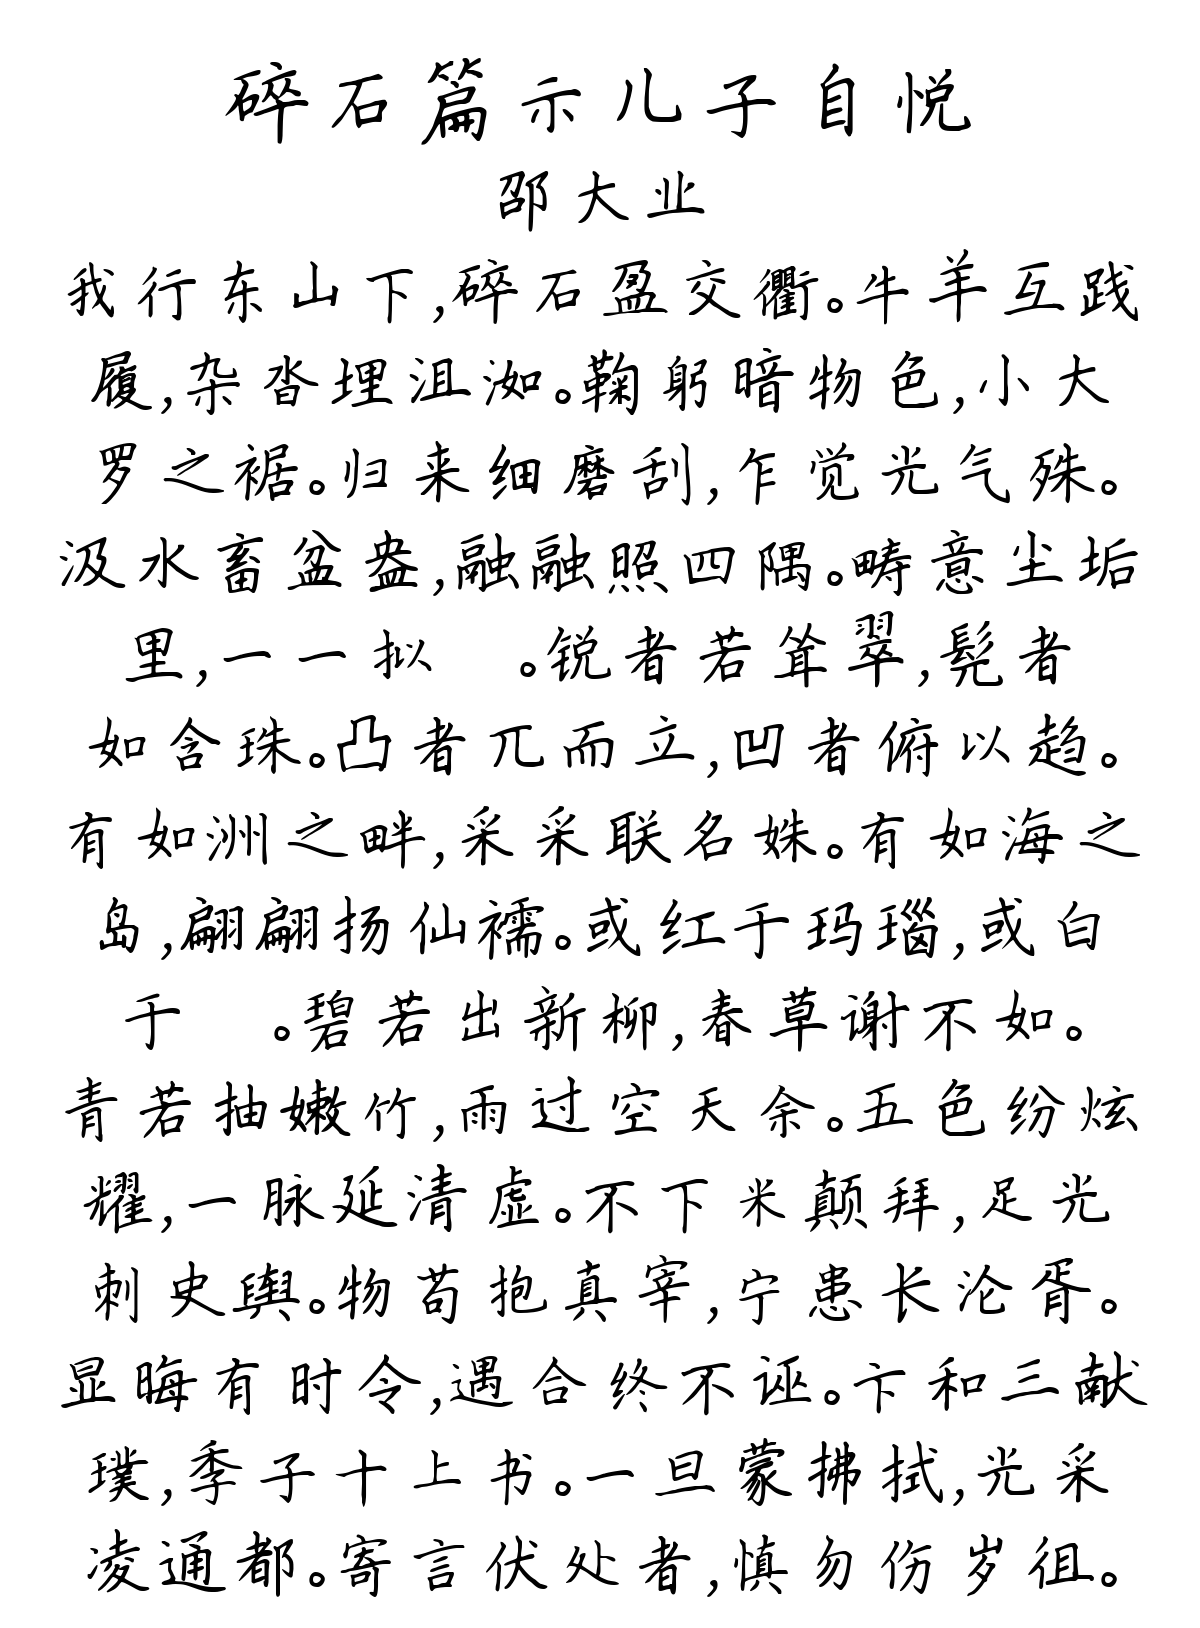 碎石篇示儿子自悦
邵大业
我行东山下,碎石盈交衢。牛羊互践
履,杂沓埋沮洳。鞠躬暗物色,小大
罗之裾。归来细磨刮,乍觉光气殊。
汲水畜盆盎,融融照四隅。畴意尘垢
里,一一拟 。锐者若耸翠,髡者
如含珠。凸者兀而立,凹者俯以趋。
有如洲之畔,采采联名姝。有如海之
岛,翩翩扬仙襦。或红于玛瑙,或白
于 。碧若出新柳,春草谢不如。
青若抽嫩竹,雨过空天余。五色纷炫
耀,一脉延清虚。不下米颠拜,足光
刺史舆。物苟抱真宰,宁患长沦胥。
显晦有时令,遇合终不诬。卞和三献
璞,季子十上书。一旦蒙拂拭,光采
凌通都。寄言伏处者,慎勿伤岁徂。